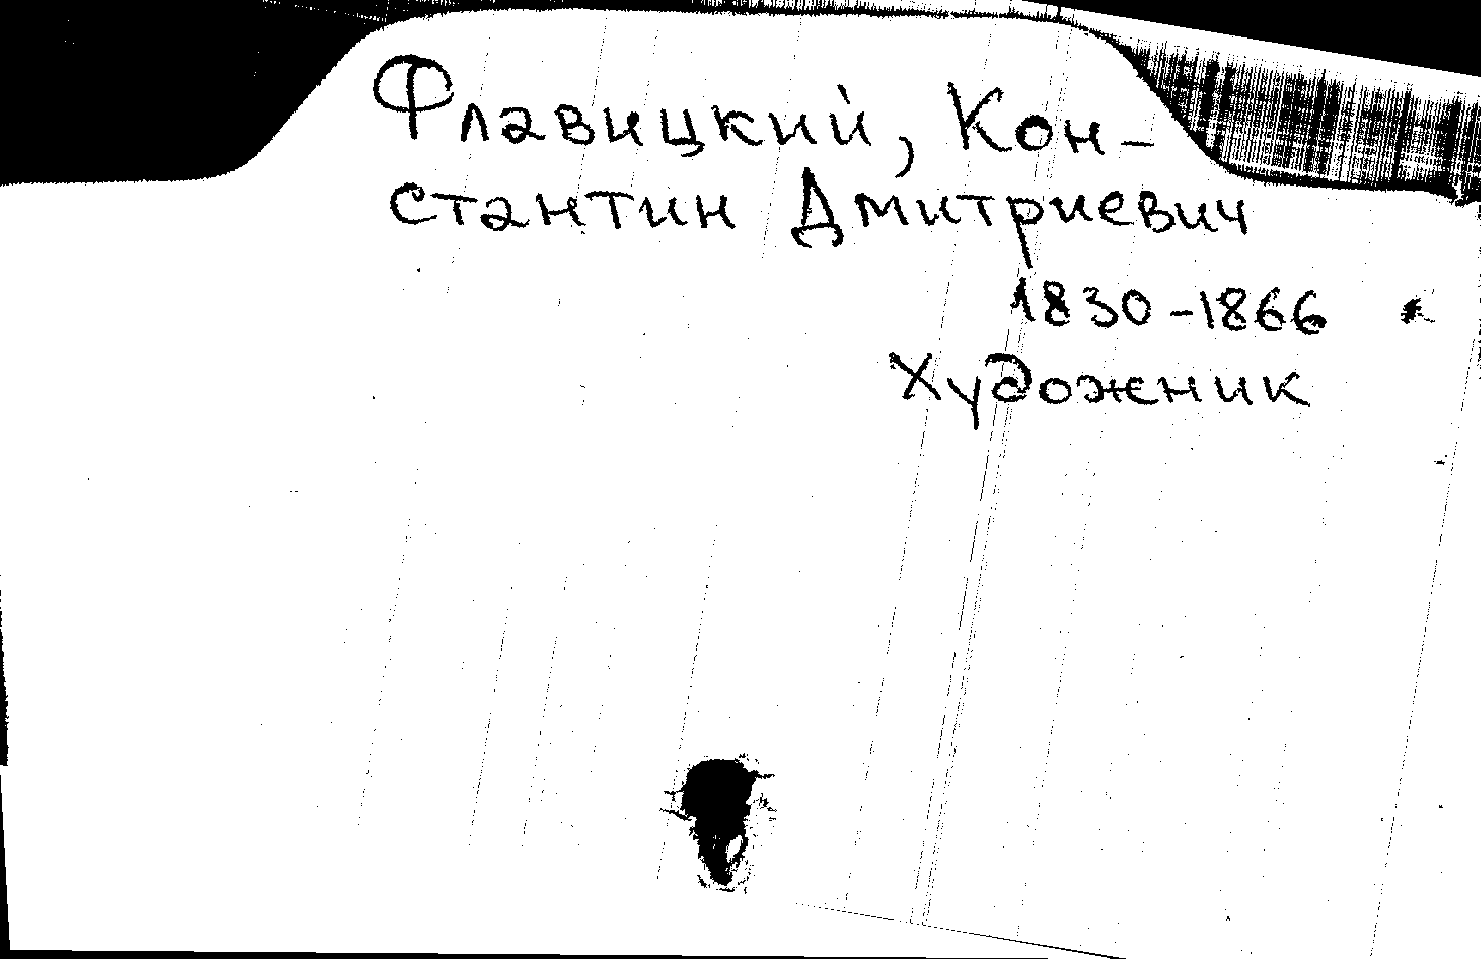 Флавицкий, Кон-
стантин Дмитриевич
1830-1866
Художник